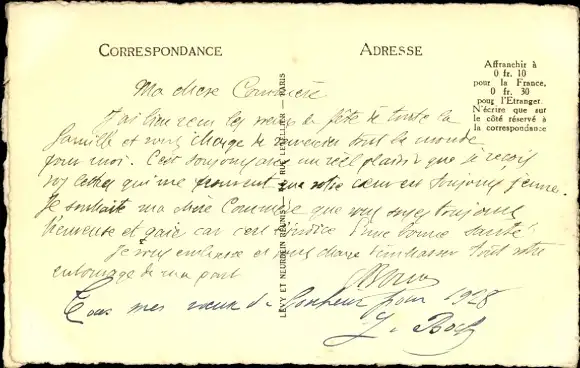 CORRESPONDANCE
ADRESSE
Affranchir à
0 fr. 10
pour la France,
0 fr. 30
pour l'Etranger.
N'écrire que sur
le côté réservé à
la correspondance
LÉVY ET NEURDEIN RÉUNIS — 44 RUE LETELLIER — PARIS
Ma chère Commère
J'ai bien reçu les vœux de fête de toute la
famille et vous charge de remercier tout le monde
pour moi. C'est toujours avec un réel plaisir que je reçois
vos lettres qui me prouvent que votre cœur est toujours jeune.
Je souhaite ma chère Commère que vous soyez toujours
heureuse et gaie car c'est l'indice d'une bonne santé
Je vous embrasse et vous charge d'embrasser tout votre
entourage de ma part
Tous mes vœux de bonheur pour 1928